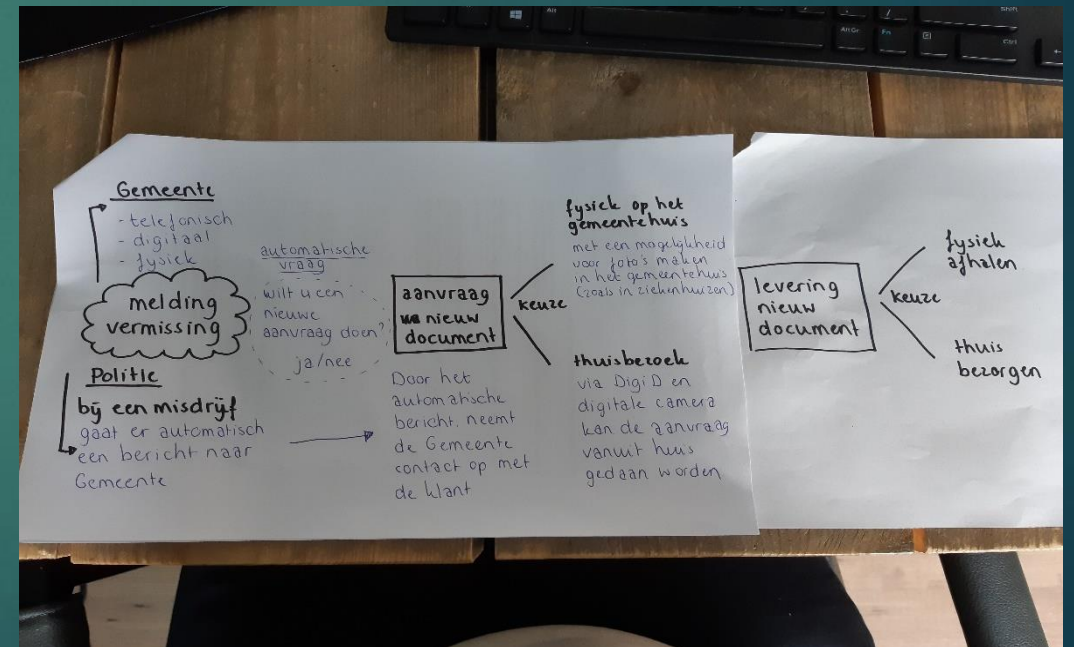 Gemeente
- telefonisch
- digitaal
- fysiek
melding
vermissing
Politie
bij een misdrijf
gaat er automatisch
een bericht naar
Gemeente
automatische
vraag
wilt u een
nieuwe
aanvraag doen?
ja/nee
aanvraag
nieuw
document
Door het
automatische
bericht, neemt
de Gemeente
contact op met
de klant
keuze
fysiek op het
gemeentehuis
met een mogelijkheid
voor foto's maken
in het gemeentehuis
(zoals in ziekenhuizen)
thuisbezoek
via DigiD en
digitale camera
kan de aanvraag
vanuit huis
gedaan worden
levering
nieuw
document
keuze
fysiek
afhalen
thuis
bezorgen
Alt
Alt Gr
Fn
Ctrl
Shift